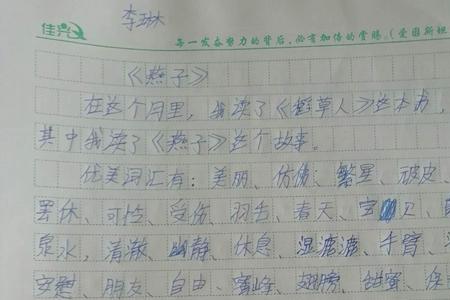 李琳
佳兴
每一发奋努力的背后，必有加倍的赏赐。（爱因斯坦
《燕子》
在这个月里，我读了《稻草人》这本书，
其中我读了《燕子》这个故事。
优美词汇有：美丽、仿佛；繁星、顽皮、
罢休、可怜、受伤、羽毛、春天、
泉水，清澈、幽静、休息、湿漉漉、手臂、
安慰、朋友、自由、蜜蜂、翅膀、甜蜜、保